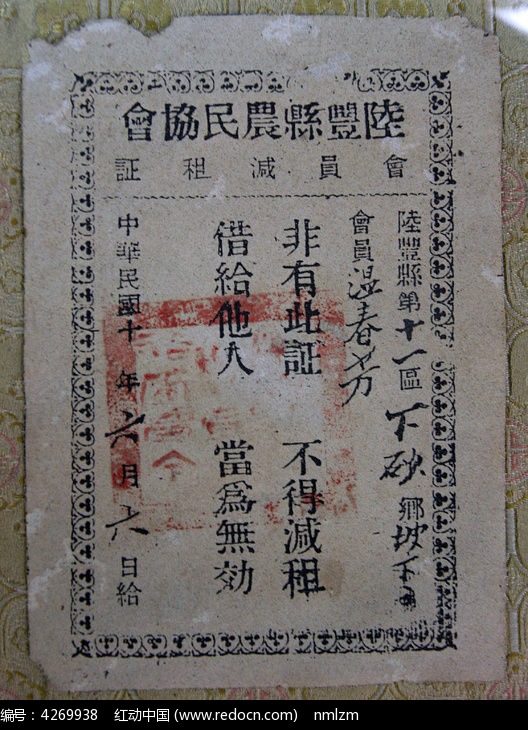 陸豐縣農民協會
會員減租証
陸豐縣第十一區下砂鄉坡下
會員溫春芳
非有此証 不得減租
借給他人 當為無効
中華民國十 年六月六日給
编号：4269938 红动中国 (www.redocn.com) nmlzm